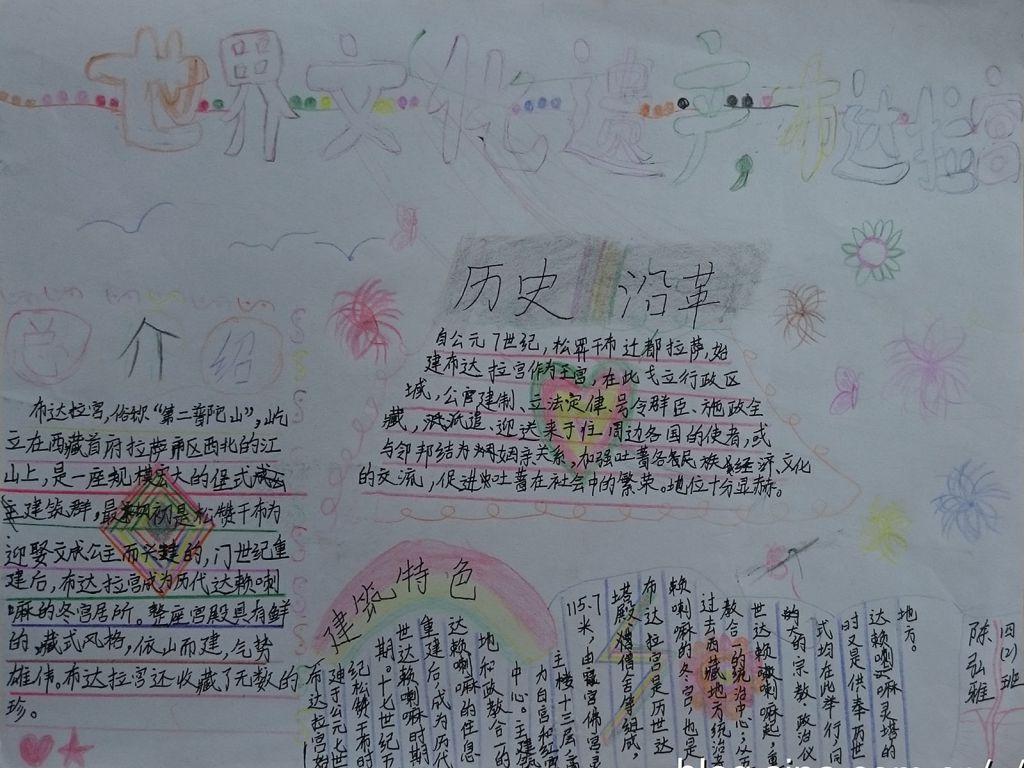 世界文化遗产,布达拉宫
总介绍
布达拉宫,俗称“第二普陀山”,屹
立在西藏首府拉萨市区西北的红
山上,是一座规模宏大的堡式
建筑群,最初是松赞干布为
迎娶文成公主而兴建的,
建后,布达拉宫成为历代达赖喇
嘛的冬宫居所。整座宫殿具有鲜
的藏式风格,依山而建,气势
雄伟。布达拉宫还收藏了无数的
珍。
历史沿革
自公元7世纪,松界干布迁都拉萨,始
建布达拉宫作为王宫,在此
城,公宫建制、立法定律、号令群臣、施政全
藏,派遣、迎送来于往周边各国的使者,或
与邻邦结为姻亲关系,加强吐蕃各民族经济、文化
的交流,促进吐蕃在社会中的繁荣。地位十分显赫。
建筑特色
布达拉宫始
建于公元七世
纪松赞干布时
期。十七世纪五
世达赖喇嘛时期
重建后,成为历代
达赖喇嘛的住息
地和政教合一的
中心。主建
为白宫和红
主楼十三层,高
115.7米,由寝宫佛宫灵
塔殿、僧舍等组成,
布达拉宫是历世达
赖喇嘛的冬宫,也是
过去西藏地方统治
教合一的统治中心,从五
世达赖喇嘛起,重
大的宗教、政治仪
式均在此举行,同
时又是供奉历世
达赖喇嘛灵塔的
地方。
四(2)班
陈弘雅